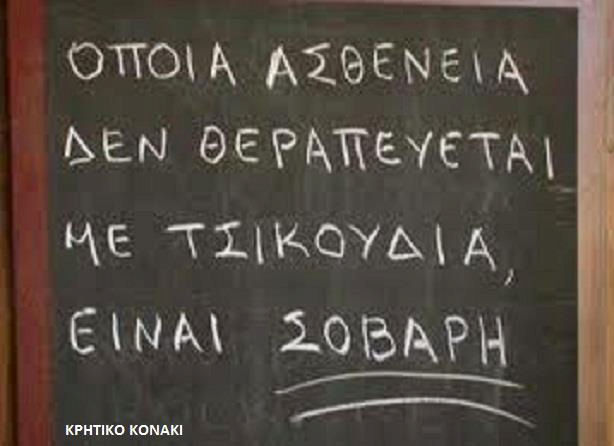 ΟΠΟΙΑ ΑΣΘΕΝΕΙΑ
ΔΕΝ ΘΕΡΑΠΕΥΕΤΑΙ
ΜΕ ΤΣΙΚΟΥΔΙΑ,
ΕΙΝΑΙ ΣΟΒΑΡΗ
ΚΡΗΤΙΚΟ ΚΟΝΑΚΙ